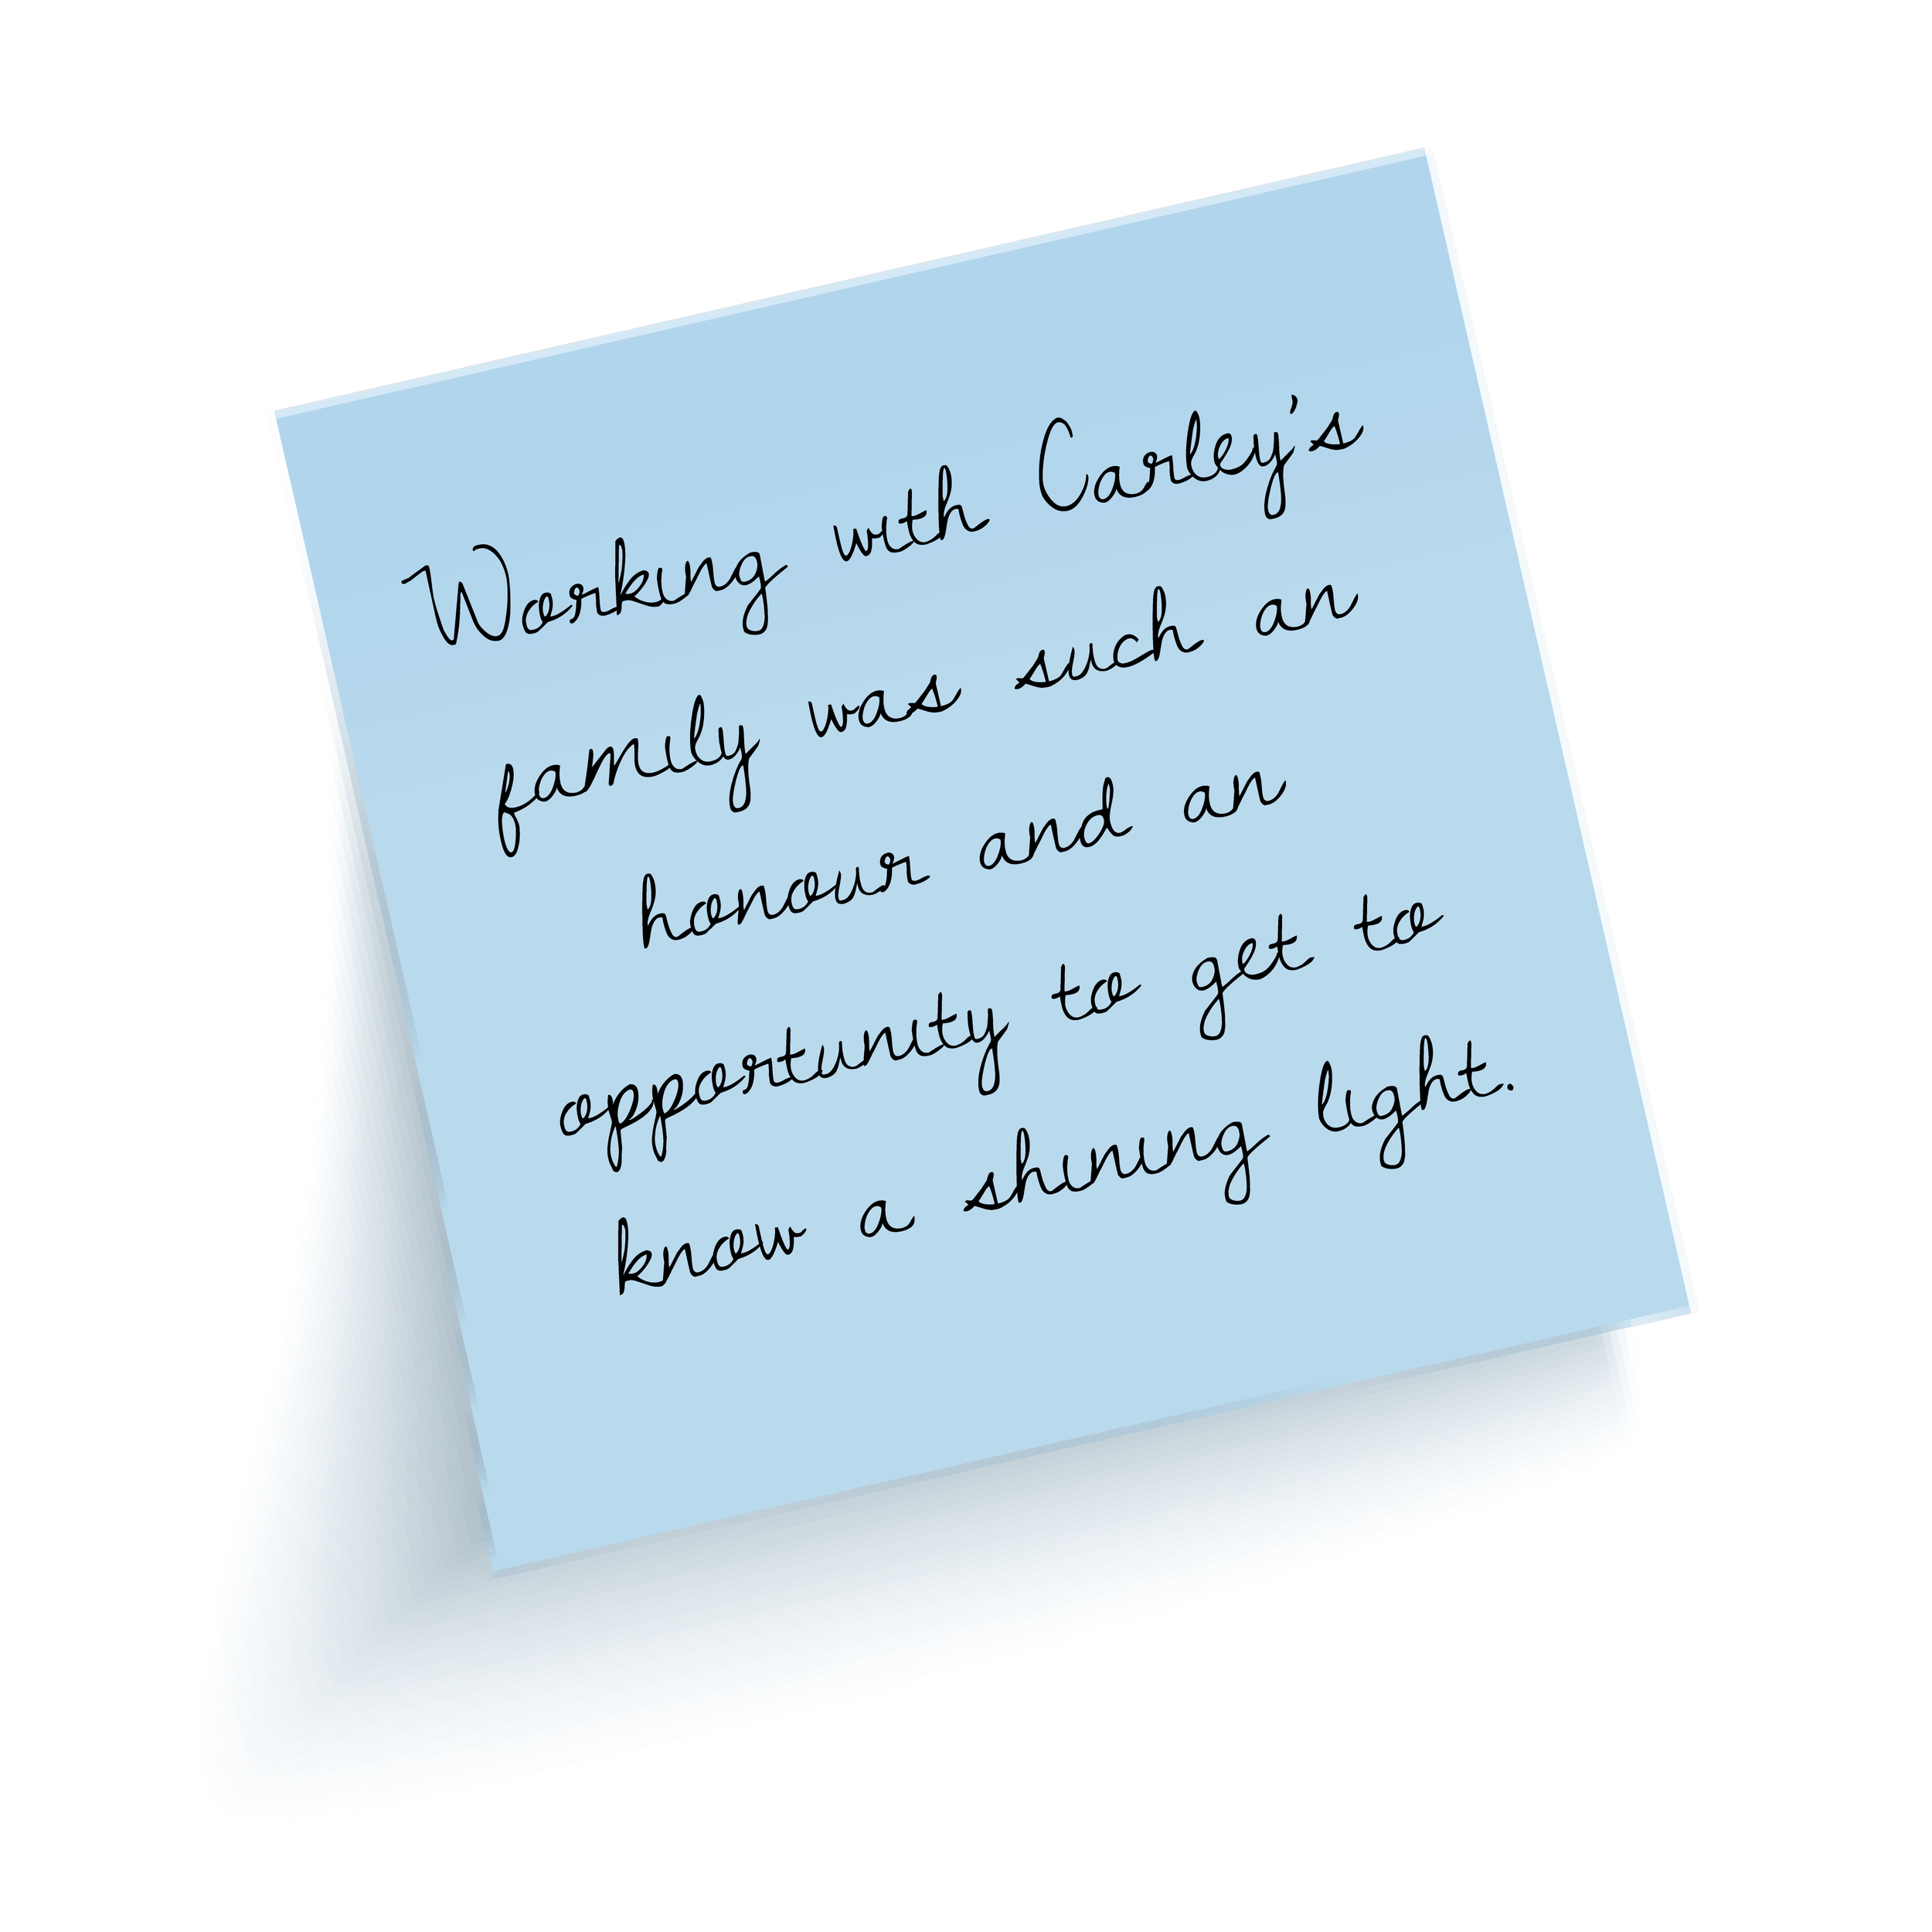 Working with Carley's
family was such an
honour and an
opportunity to get to
know a shining light.